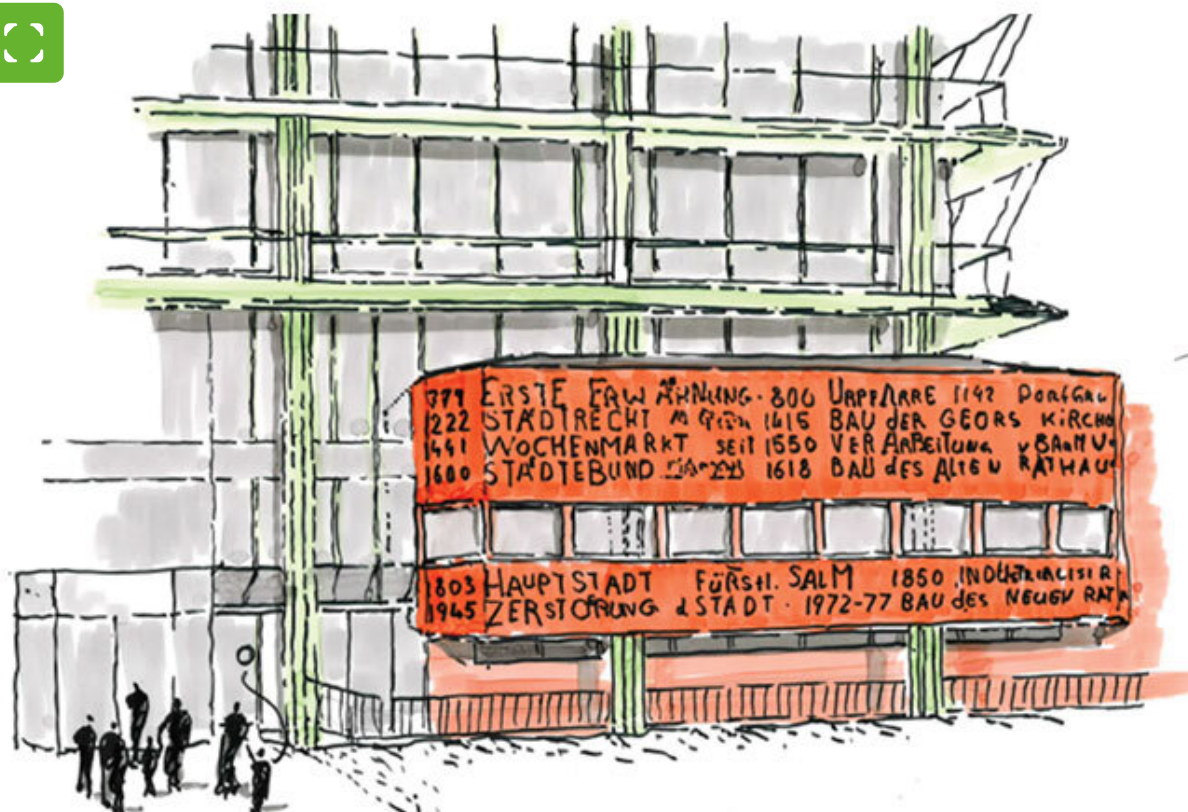 779 ERSTE ERWÄHNUNG · 800 URPFARRE 1142
1222 STADTRECHT 1415 BAU DER GEORS KIRCHE
1441 WOCHENMARKT SEIT 1550 VERARBEITUNG V BAUMW
1600 STÄDTEBUND 1618 BAU DES ALTEN RATHAU
1803 HAUPTSTADT FÜRSTL. SALM 1850 INDUSTRIALISIR
1945 ZERSTÖRUNG d STADT · 1972-77 BAU des NEUEN RATH